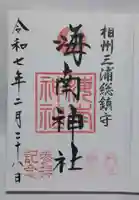 相州三浦総鎮守
海南神社
令和七年二月二十八日